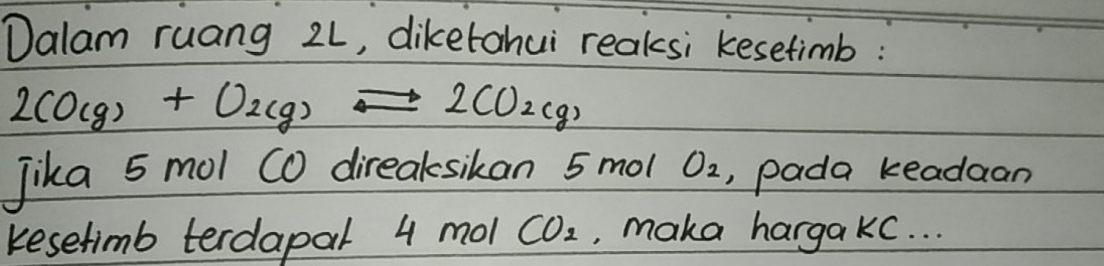 Dalam ruang 2L, diketahui reaksi kesetimb :
2CO(g) + O2(g) ⇌ 2CO2(g)
Jika 5 mol CO direaksikan 5 mol O2, pada keadaan
kesetimb terdapat 4 mol CO2, maka harga KC...